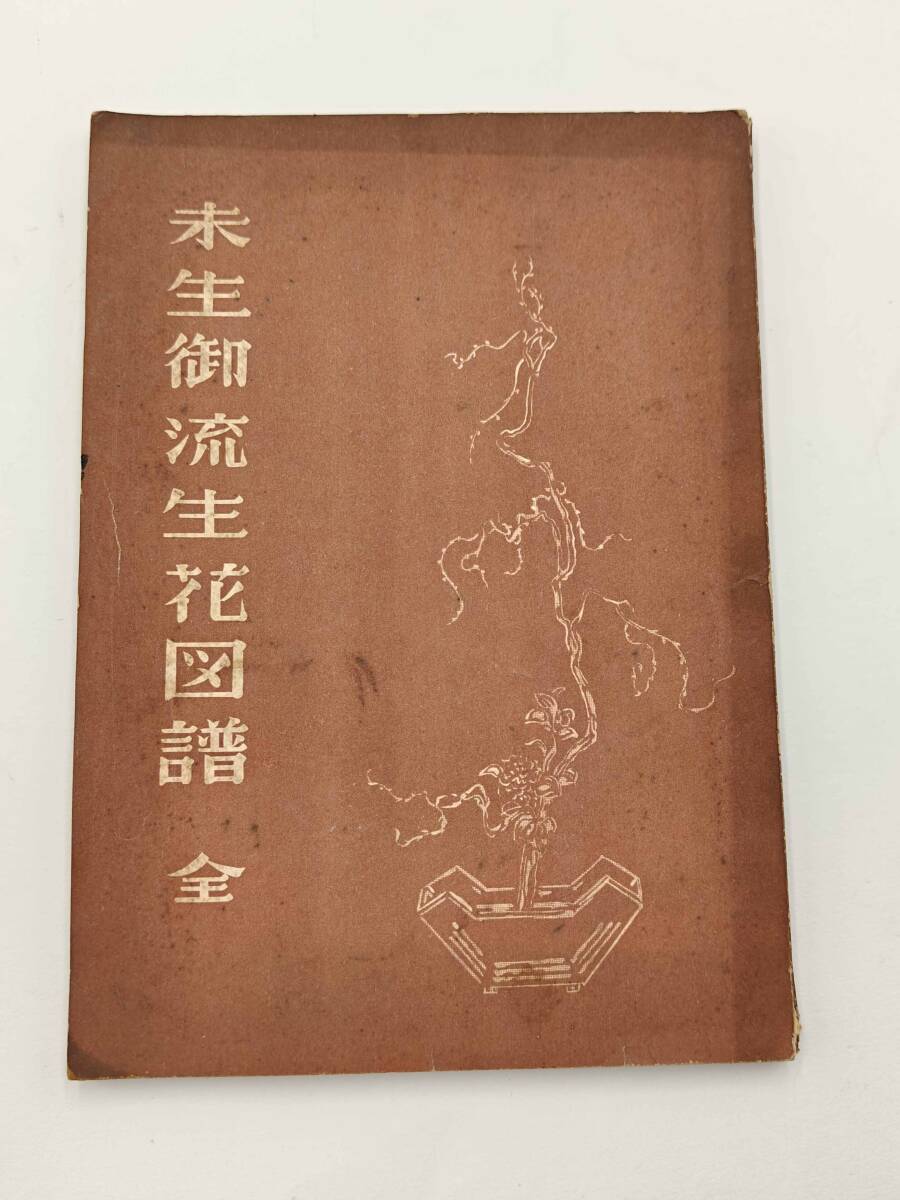 未生御流生花図譜 全